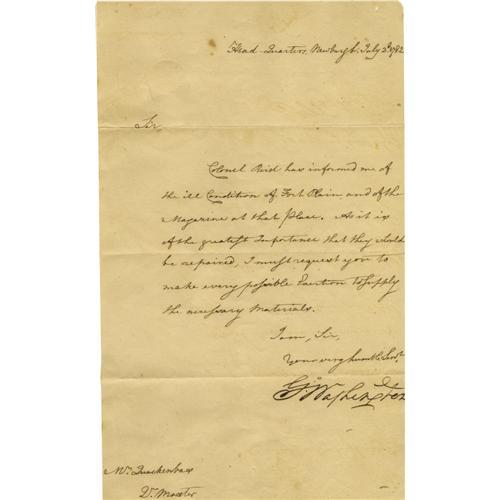 Head Quarters, Newburgh July 2d 1782
Sir,
Colonel Reid has informed me of
the ill Condition of Fort Plain, and of the
Magazine at that place. As it is
of the greatest Importance that they should
be repaired, I must request you to
make every possible Exertion to supply
the necessary Materials.
I am, Sir,
Your very humble Servt
Go Washington
Mr Quackenbass
Dr Master